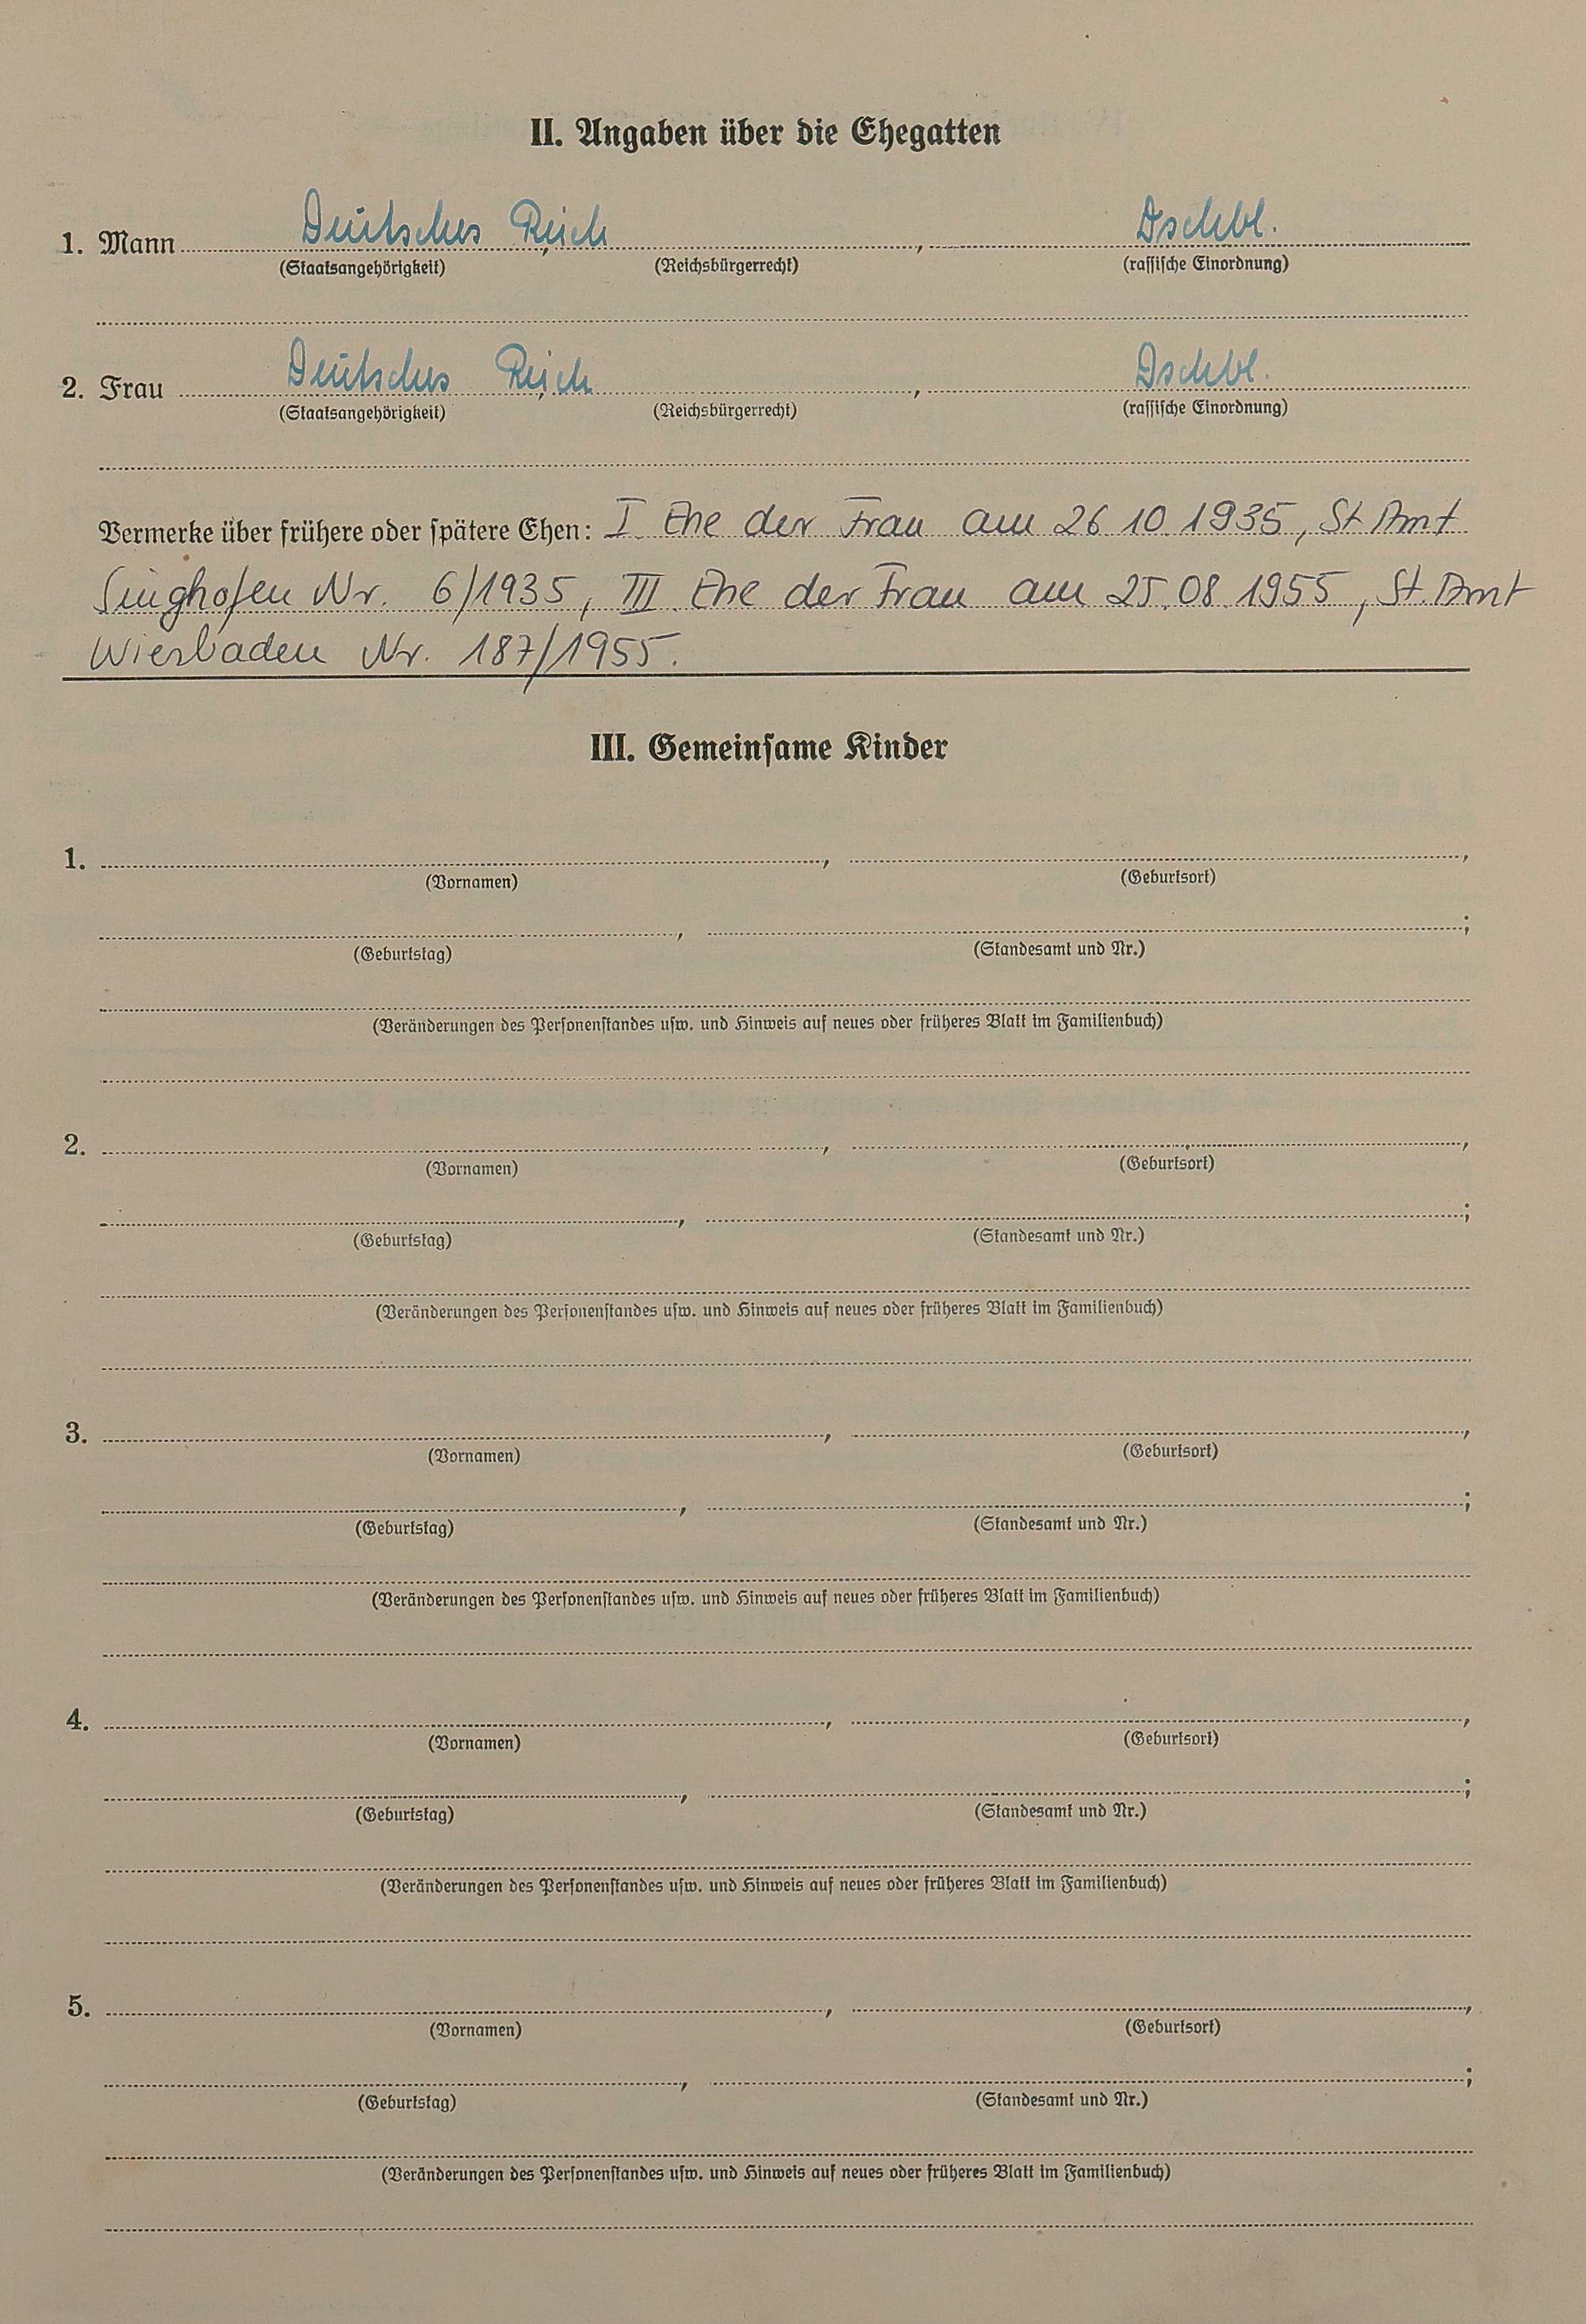 II. Angaben über die Ehegatten
1. Mann Deutsches Reich , Dschbl.
(Staatsangehörigkeit) (Reichsbürgerrecht) (rassische Einordnung)
2. Frau Deutsches Reich , Dschbl.
(Staatsangehörigkeit) (Reichsbürgerrecht) (rassische Einordnung)
Vermerke über frühere oder spätere Ehen: I Ehe der Frau am 26 10 1935, St Amt
Singhofen Nr. 6/1935, III. Ehe der Frau am 25.08.1955, St. Amt
Wiesbaden Nr. 187/1955.
III. Gemeinsame Kinder
1. , ,
(Vornamen) (Geburtsort)
, ;
(Geburtstag) (Standesamt und Nr.)
(Veränderungen des Personenstandes usw. und Hinweis auf neues oder früheres Blatt im Familienbuch)
2. , ,
(Vornamen) (Geburtsort)
, ;
(Geburtstag) (Standesamt und Nr.)
(Veränderungen des Personenstandes usw. und Hinweis auf neues oder früheres Blatt im Familienbuch)
3. , ,
(Vornamen) (Geburtsort)
, ;
(Geburtstag) (Standesamt und Nr.)
(Veränderungen des Personenstandes usw. und Hinweis auf neues oder früheres Blatt im Familienbuch)
4. , ,
(Vornamen) (Geburtsort)
, ;
(Geburtstag) (Standesamt und Nr.)
(Veränderungen des Personenstandes usw. und Hinweis auf neues oder früheres Blatt im Familienbuch)
5. , ,
(Vornamen) (Geburtsort)
, ;
(Geburtstag) (Standesamt und Nr.)
(Veränderungen des Personenstandes usw. und Hinweis auf neues oder früheres Blatt im Familienbuch)